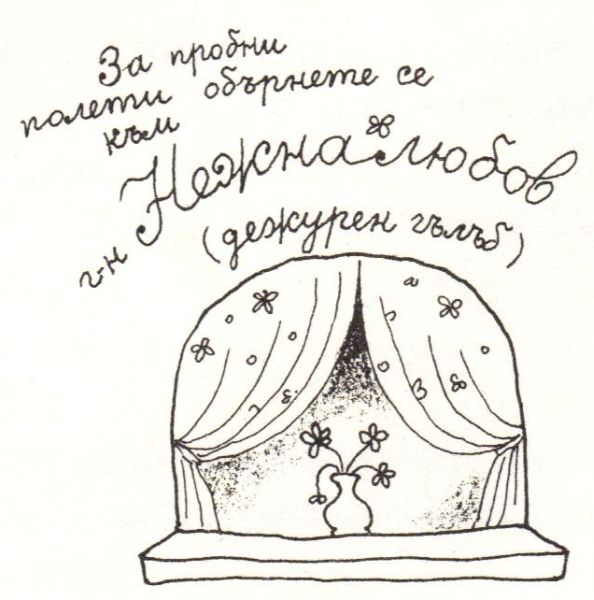 За пробни
полети обърнете се
към
г-н Нежна любов
(дежурен гълъб)